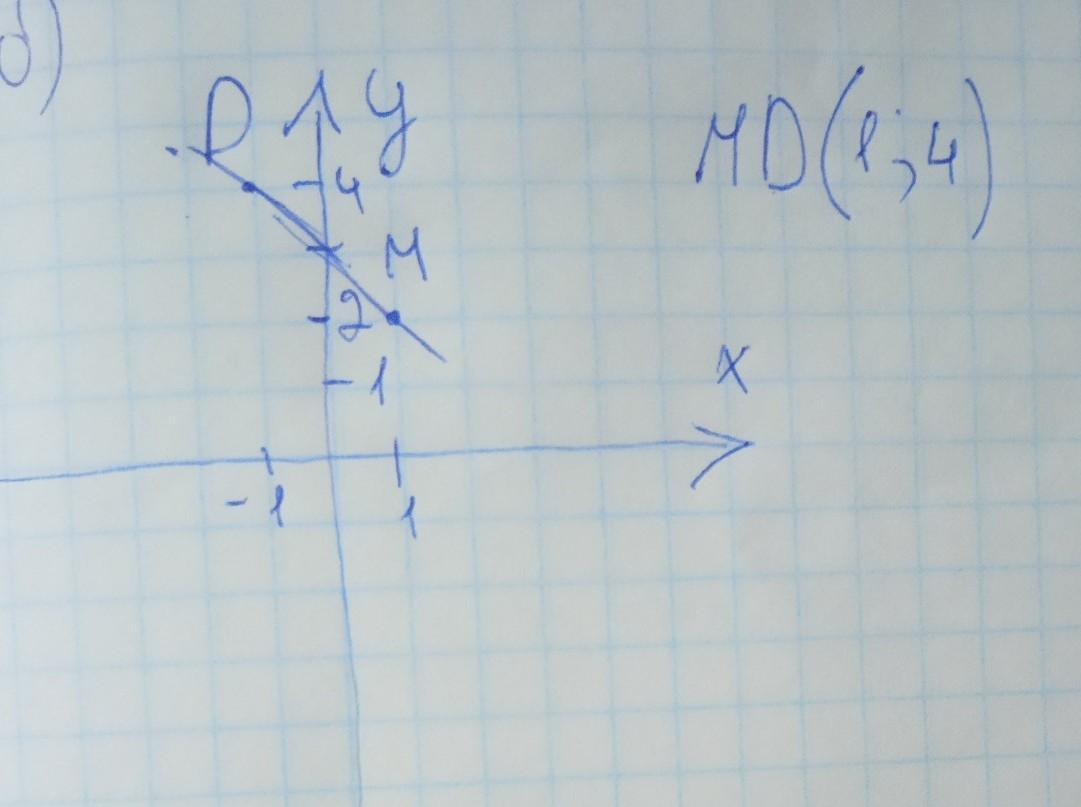 б)
D y MD(1;4)
4
M
2
1
x
-1 1